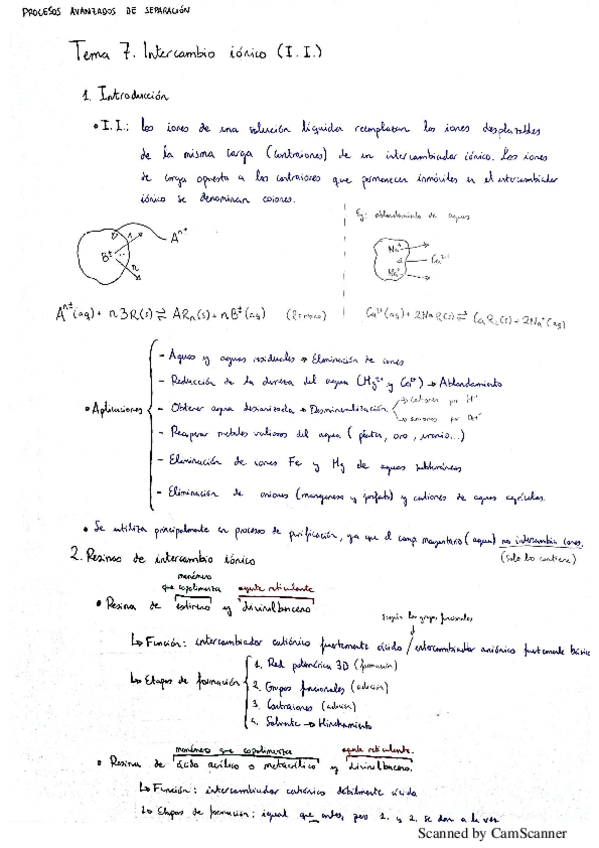 PROCESOS AVANZADOS DE SEPARACIÓN
Tema 7. Intercambio iónico (I.I.)
1. Introducción
• I.I.: Los iones de una solución líquida reemplazan los iones desplazables
de la misma carga (contraiones) de un intercambiador iónico. Los iones
de carga opuesta a los contraiones que permanecen inmóviles en el intercambiador
iónico se denominan coiones.
Ej: ablandamiento de aguas
B± n Aⁿ±
Na⁺ Na⁺ Ca²⁺
Aⁿ±(aq) + nBR(s) ⇌ ARn(s) + nB±(aq)
Ca²⁺(aq) + 2NaR(s) ⇌ CaR₂(s) + 2Na⁺(aq)
• Aplicaciones
- Aguas y aguas residuales → Eliminación de iones
- Reducción de la dureza del agua (Mg²⁺ y Ca²⁺) → Ablandamiento
- Obtener agua desionizada → Desmineralización → cationes por H⁺
→ aniones por OH⁻
- Recuperar metales valiosos del agua (plata, oro, uranio...)
- Eliminación de iones Fe y Mg de aguas subterráneas
- Eliminación de aniones (manganeso y fosfato) y cationes de aguas agrícolas.
• Se utiliza principalmente en procesos de purificación, ya que el comp. mayoritario (agua) no intercambia iones.
(solo los contiene)
2. Resinas de intercambio iónico
monómero
que copolimeriza agente reticulante
• Resina de estireno y divinilbenceno
según los grupos funcionales
↳ Función: intercambiador catiónico fuertemente ácido / intercambiador aniónico fuertemente básico
↳ Etapas de formación
1. Red polimérica 3D (formación)
2. Grupos funcionales (adición)
3. Contraiones (adición)
4. Solvente → Hinchamiento
monómero que copolimeriza agente reticulante.
• Resina de ácido acrílico o metacrílico y divinilbenceno.
↳ Función: intercambiador catiónico débilmente ácido
↳ Etapas de formación: igual que antes, pero 1. y 2. se dan a la vez
Scanned by CamScanner